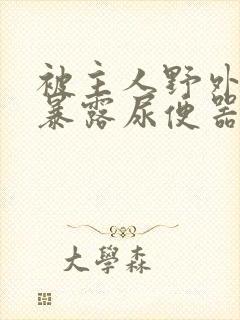 被主人野外
暴露尿便器
大學森